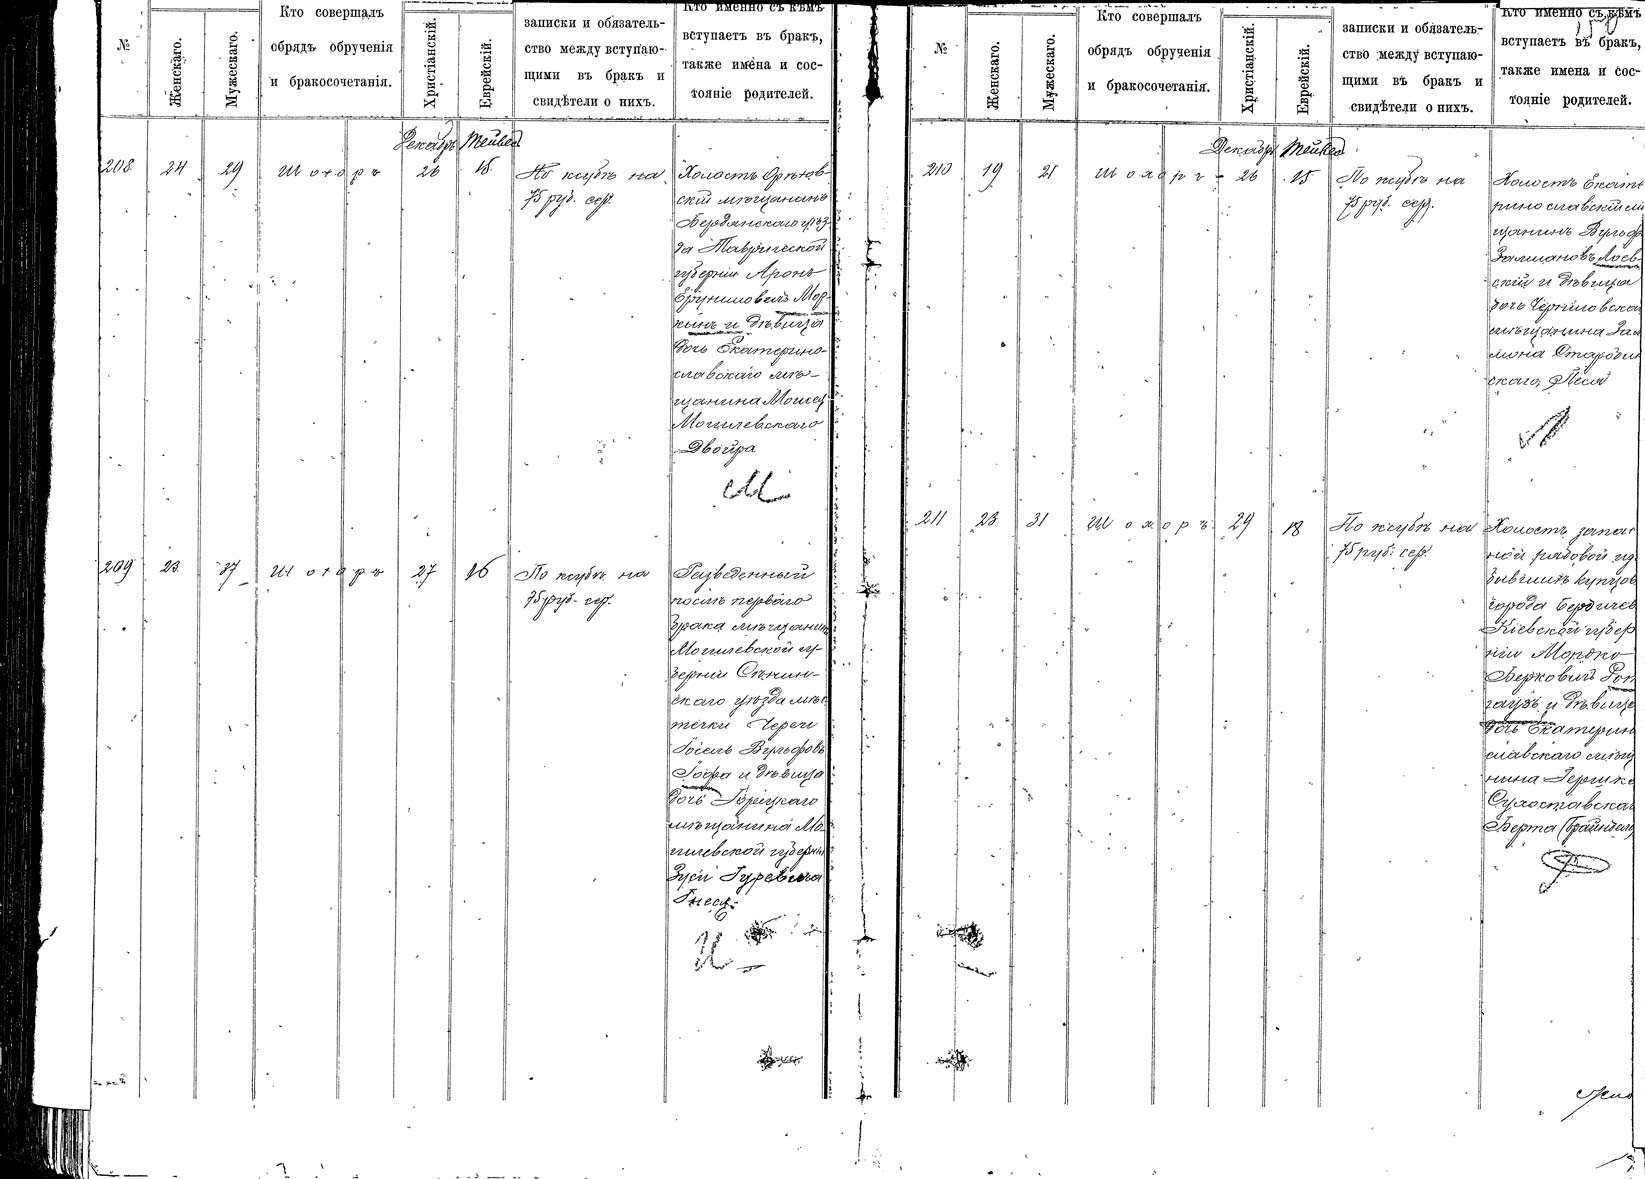 №
Женскаго.
Мужескаго.
Кто совершалъ
обрядъ обрученія
и бракосочетанія.
Христіанскій.
Еврейскій.
записки и обязатель-
ство между вступаю-
щими въ бракъ и
свидѣтели о нихъ.
Кто именно съ кѣмъ
вступаетъ въ бракъ,
также имена и сос-
тояніе родителей.
Декабрь Тейвес
208 24 29 Шохоръ 26 15
По ксубѣ на
75 руб. сер.
Холостъ Орѣхов-
скій мѣщанинъ
Бердянскаго уѣз-
да Таврической
губерніи Аронъ
Мор-
кинъ и дѣвица
дочь Екатерино-
славскаго мѣ-
щанина
Могилевскаго
Двойра
209 23 37 Шохоръ 27 16
По ксубѣ на
75 руб. сер.
Разведенный
послѣ перваго
брака мѣщанинъ
Могилевской гу-
берніи Сѣнин-
скаго уѣзда мѣс
течки Череи
Іосель Вульфовъ
Гофа и дѣвица
дочь Горецкаго
мѣщанина Мо
гилевской губерніи
Зуси Гуревича
Гнеся
№
Женскаго.
Мужескаго.
Кто совершалъ
обрядъ обрученія
и бракосочетанія.
Христіанскій.
Еврейскій.
записки и обязатель-
ство между вступаю-
щими въ бракъ и
свидѣтели о нихъ.
Кто именно съ кѣмъ
вступаетъ въ бракъ,
также имена и сос-
тояніе родителей.
Декабрь Тейвес
210 19 21 Шохоръ 26 15
По ксубѣ на
75 руб. сер.
Холостъ Екате
ринославскій мѣ
щанинъ Вульфъ
Залмановъ Лоев-
скій и дѣвица
дочь
мѣщанина Зал
мона Стародуб
скаго, Песя
211 23 31 Шохоръ 29 18
По ксубѣ на
75 руб. сер.
Холостъ запас
ной рядовой изъ
бывшихъ купцов
города Бердичев
Кіевской губер
ніи Мордко
Берковичъ Рои
гаузъ и дѣвица
дочь Екатерин
славскаго мѣщ
нина Гершко
Сухоставска
Берта (Брайндель)